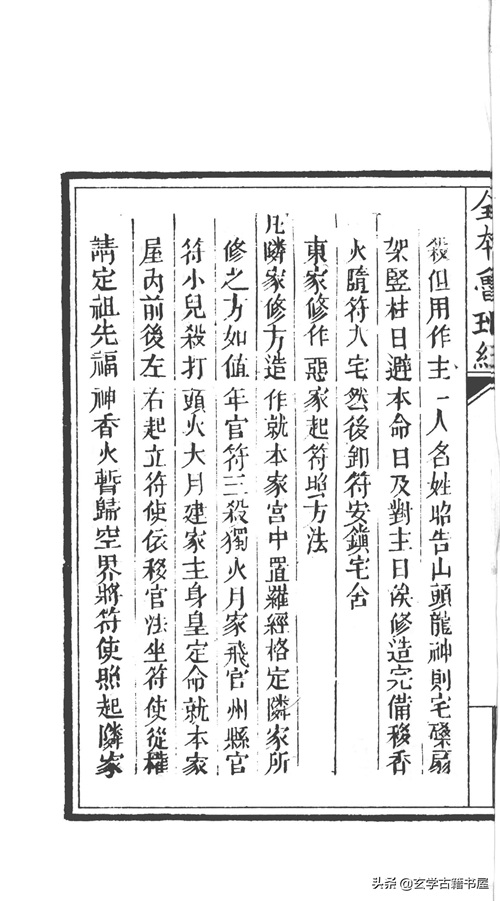 全本魯班經
殺但用作主一人名姓昭告山頭龍神則宅磉扇
架竪柱日避本命日及對主日俟修造完備移香
火隨符入宅然後卸符安鎮宅舍
東家修作惡家起符照方法
凡隣家修方造作就本家宫中置羅經格定隣家所
修之方如值年官符三殺獨火月家飛官州縣官
符小兒殺打頭火大月建家主身皇定命就本家
屋内前後左右起立符使依移官法坐符使從權
請定祖先福神香火暫歸空界將符使照起隣家
头条@玄学古籍书屋